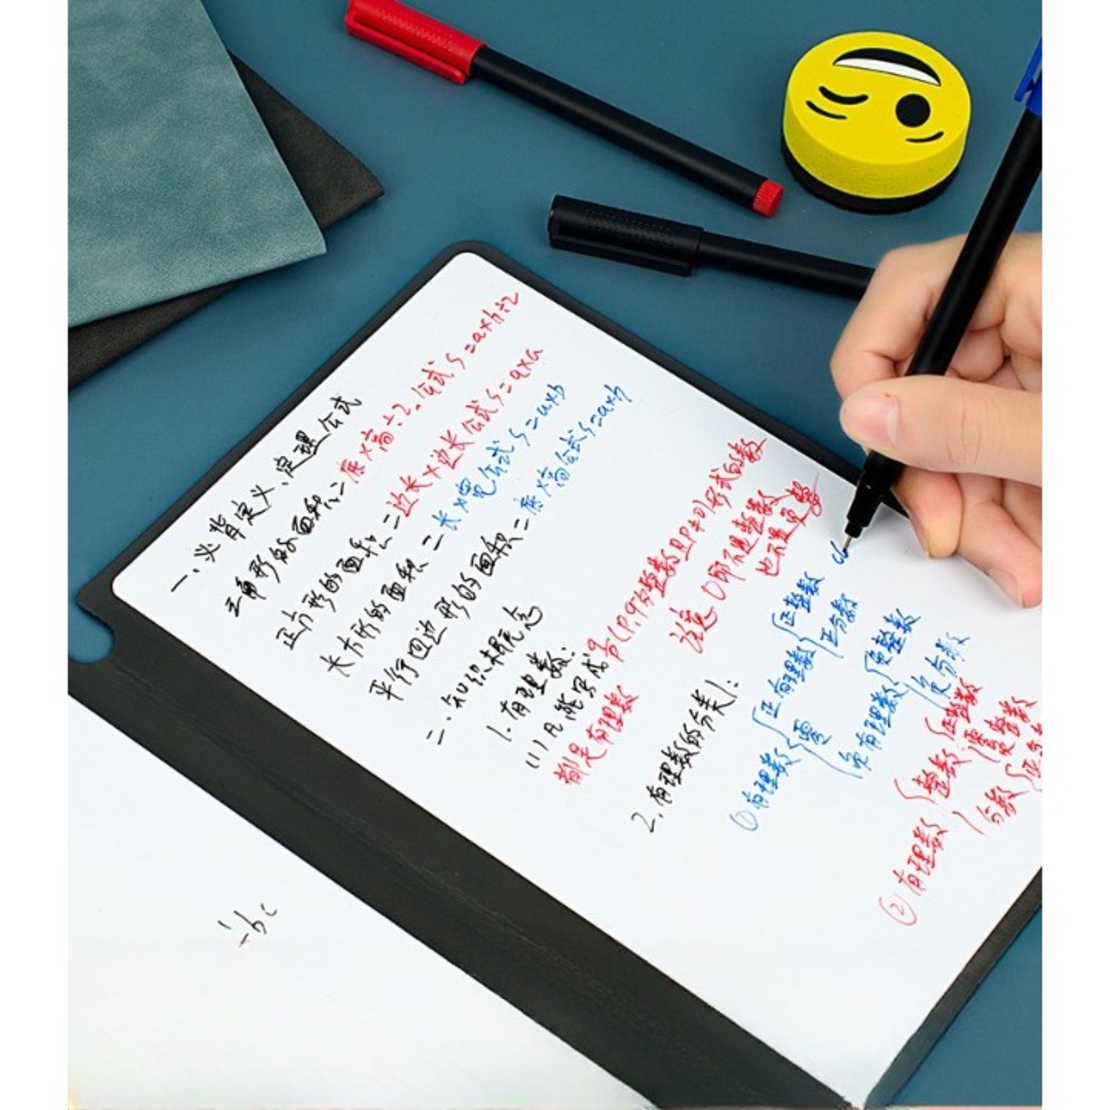 一.必背定义、定理公式
三角形的面积=底×高÷2_公式S=a×h÷2
正方形的面积=边长×边长 公式S=a×a
长方形的面积=长×宽 公式S=a×b
平行四边形的面积=底×高 公式S=a×h
二.知识根概念
1.有理数:
(1)凡能写成(p,q为整数且p≠0)形式的数
都是有理数
注意 0即不是整数
也不是
2.有理数的分类:
①有理数{正有理数{正整数
正分数
零
负有理数{负整数
负分数
②有理数{整数{正整数
零
负整数
分数{正分
bc